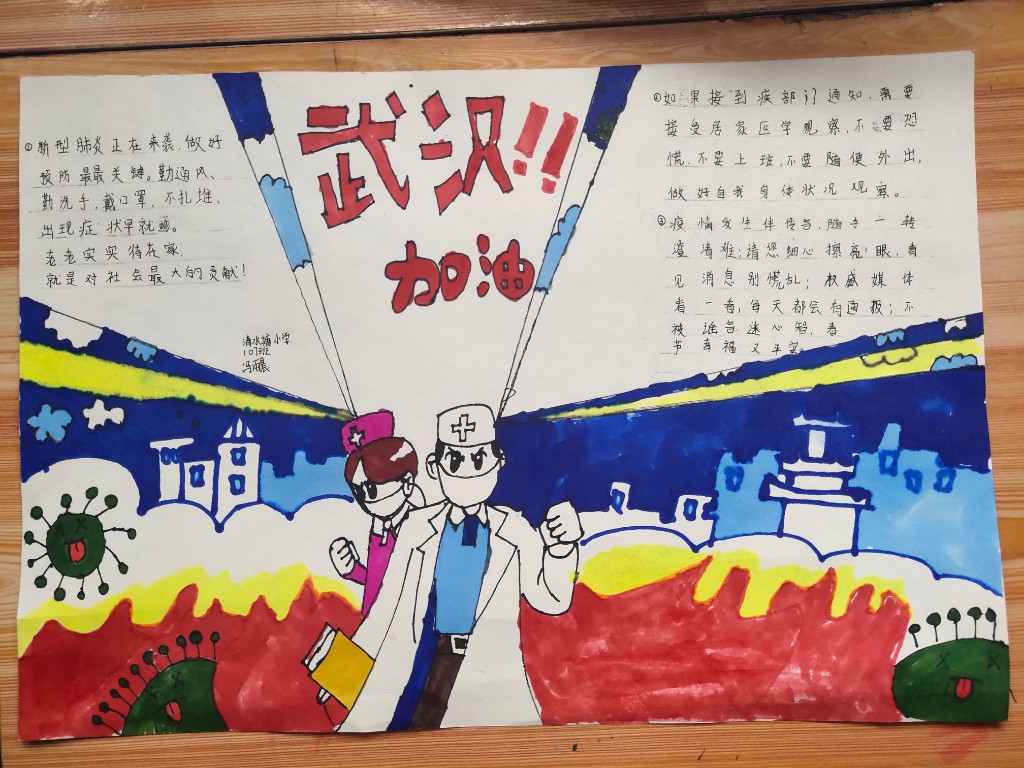 武汉!!
加油
①新型肺炎正在来袭,做好
预防最最关键。勤通风、
勤洗手,戴口罩,不扎堆、
出现症状早就医。
老老实实待在家,
就是对社会最大的贡献!
清水塘小学
107班
冯雨晨
②如果接到疾部门通知,需要
接受居家医学观察,不要恐
慌,不要上班,不要随便外出,
做好自我身体状况观察。
③疫情发生伴传言,随手一转
盗清难;请您细心擦亮眼,看
见消息别慌乱;权威媒体
看一看,每天都会有通报;不
被谣言迷心智,春
节幸福又平安。